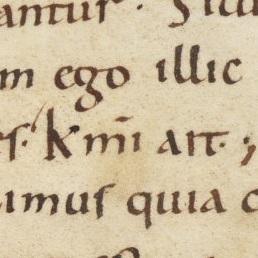 antur. Sicu
m ego illic
s. kmī art. ;
imus quia